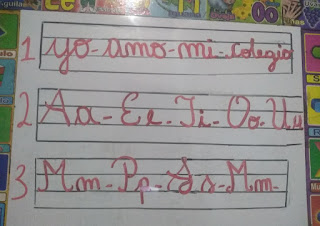 1 yo-amo-mi-colegio
2 Aa-Ee-Ii-Oo-Uu
3 Mm-Pp-Ss-Mm-